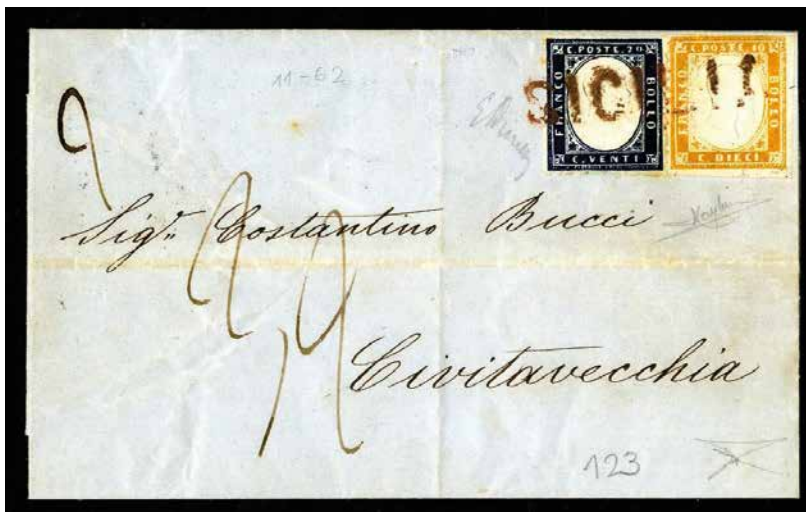 11-62
C. POSTE. 20
FRANCO
BOLLO
C. VENTI
C. POSTE. 10
FRANCO
BOLLO
C. DIECI
Sigr. Costantino Bucci
Civitavecchia
123